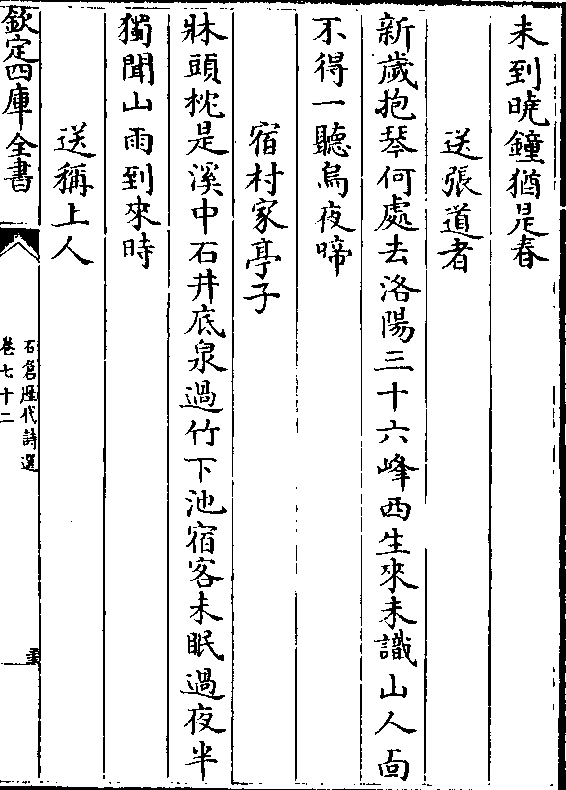 未到曉鐘猶是春
送張道者
新歲抱琴何處去洛陽三十六峰西生來未識山人面
不得一聽烏夜啼
宿村家亭子
牀頭枕是溪中石井底泉過竹下池宿客未眠過夜半
獨聞山雨到來時
送稱上人
欽定四庫全書
石倉歷代詩選
卷七十二